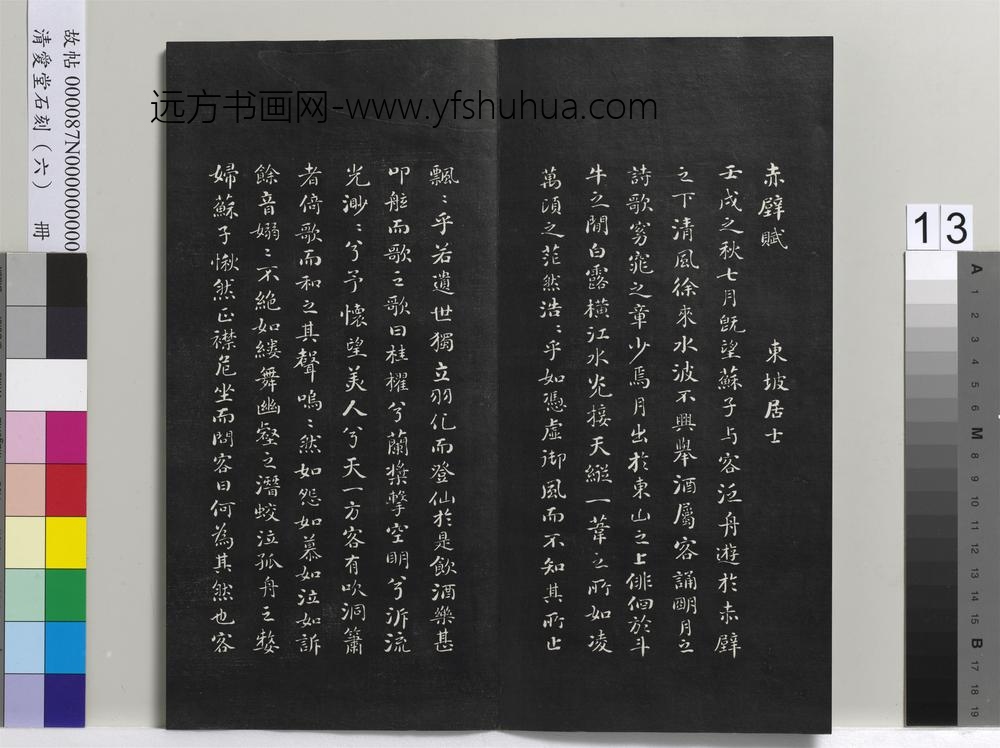 故帖 0000087N000000000
清愛堂石刻（六） 冊
远方书画网-www.yfshuhua.com
赤壁賦 東坡居士
壬戌之秋七月既望蘇子与客泛舟遊於赤壁
之下清風徐來水波不興舉酒屬客誦明月之
詩歌窈窕之章少焉月出於東山之上徘徊於斗
牛之間白露橫江水光接天縱一葦之所如凌
萬頃之茫然浩〻乎如憑虛御風而不知其所止
飄〻乎若遺世獨立羽化而登仙於是飲酒樂甚
叩舷而歌之歌曰桂櫂兮蘭槳擊空明兮泝流
光渺〻兮予懷望美人兮天一方客有吹洞簫
者倚歌而和之其聲嗚〻然如怨如慕如泣如訴
餘音嫋〻不絕如縷舞幽壑之潛蛟泣孤舟之嫠
婦蘇子愀然正襟危坐而問客曰何為其然也客
13
A 1 2 3 4 5 6 M 8 9 10 11 12 13 14 15 B 17 18 19